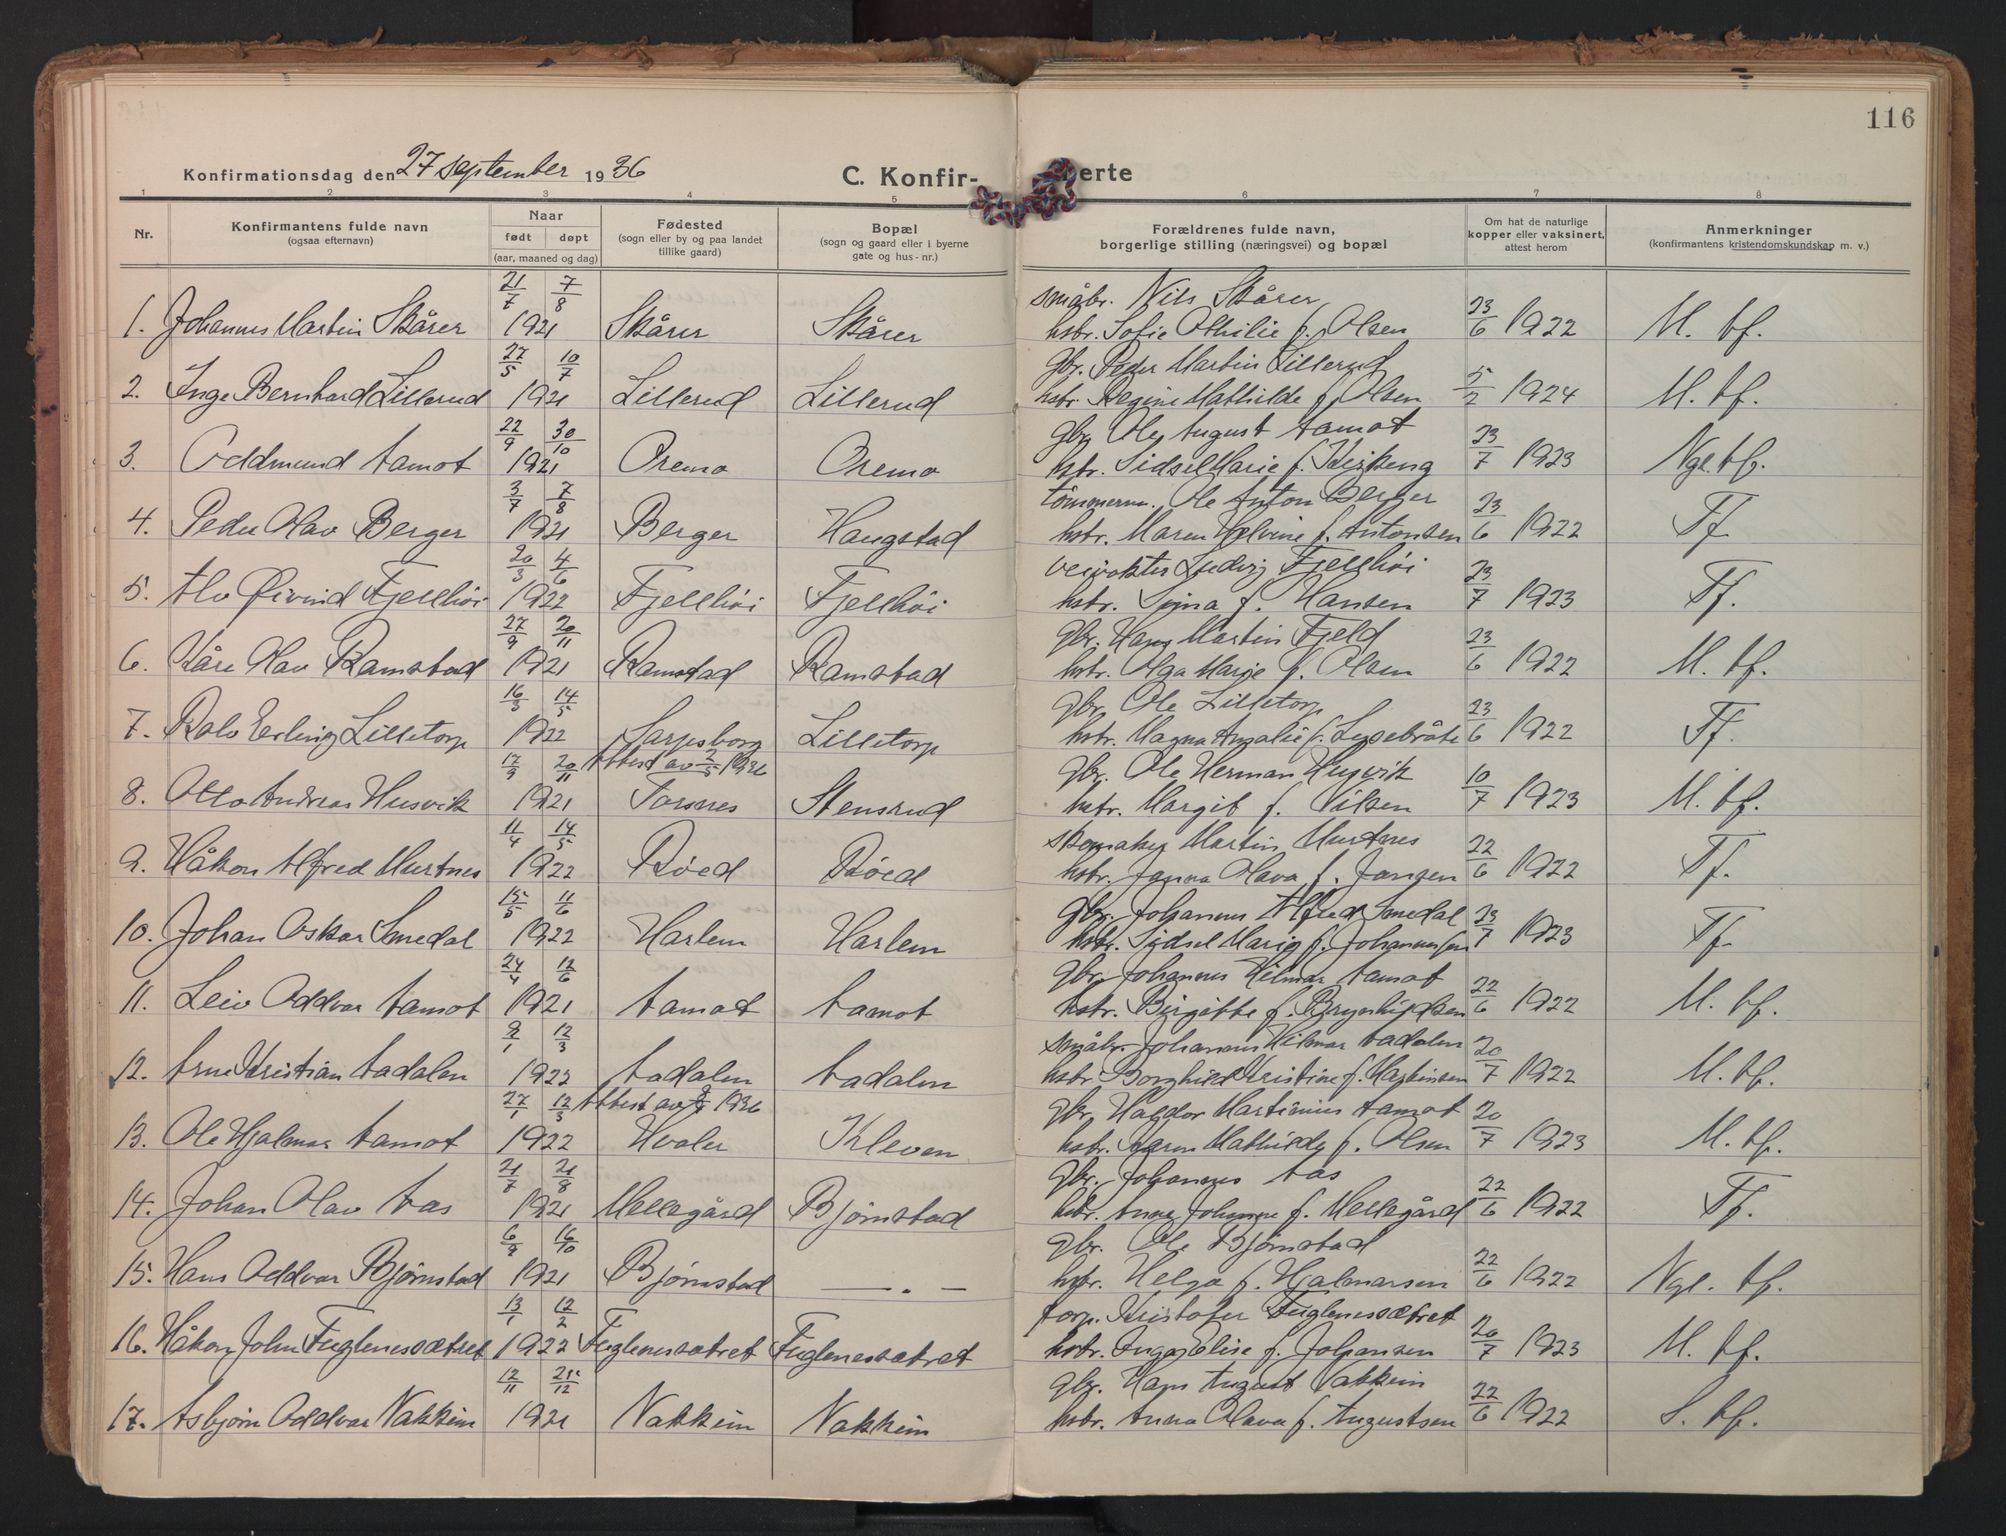 116
Konfirmationsdag den 27 september 1936
C. Konfir- erte
1 2 3 4 5 6 7 8
Nr.
Konfirmantens fulde navn
(ogsaa efternavn)
Naar
født døpt
(aar, maaned og dag)
Fødested
(sogn eller by og paa landet
tillike gaard)
Bopæl
(sogn og gaard eller i byerne
gate og hus-nr.)
Forældrenes fulde navn,
borgerlige stilling (næringsvei) og bopæl
Om hat de naturlige
kopper eller vaksinert,
attest herom
Anmerkninger
(konfirmantens kristendomskundskap m. v.)
21/7 7/8 småbr. Nils Skårer
1. Johannes Martin Skårer 1921 Skårer Skårer hstr. Sofie Othilie f. Olsen 23/6 1922 M. tf.
27/5 10/7 gbr. Peder Martin Lillerud
2. Inge Bernhard Lillerud 1921 Lillerud Lillerud hstr. Regine Mathilde f. Olsen 5/2 1924 M. tf.
22/9 30/10 gbr. Ole August Aamot
3. Oddmund Aamot 1921 Oremo Oremo hstr. Sidsel Marie f. 23/7 1923 Ngl. tf.
3/7 7/8 tömmerm. Ole Anton Berger
4. Peder Olav Berger 1921 Berger Haugstad hstr. Maren Helvine f. Antonsen 23/6 1922 Tf.
20/3 4/6 veivokter Ludvig Fjellhöi
5. Alv Øivind Fjellhöi 1922 Fjellhöi Fjellhöi hstr. Signa f. Hansen 23/7 1923 Tf.
27/9 20/11 gbr. Hans Martin Fjeld
6. Kåre Olav Ramstad 1921 Ramstad Ramstad hstr. Olga Marie f. Olsen 23/6 1922 M. tf.
16/3 14/5 gbr. Ole Lilletorp
7. Rolv Erling Lilletorp 1922 Sarpsborg Lilletorp hstr. Magna Amalie f. Lysebråte 23/6 1922 Tf.
17/9 20/11 Attest av 2/5 1936 gbr. Ole Herman Husvik
8. Otto Andreas Husvik 1921 Torsnes Stensrud hstr. Margit f. Nilsen 10/7 1923 M. tf.
11/4 14/5 skomaker Martin Murtnes
9. Håkon Alfred Murtnes 1922 Röed Röed hstr. Janna Olava f. Jansen 22/6 1922 Tf.
15/5 11/6 gbr. Johannes Alfred Smedal
10. Johan Oskar Smedal 1922 Harlem Harlem hstr. Sidsel Marie f. Johannessen 23/7 1923 Tf.
24/4 12/6 gbr. Johannes Hilmar Aamot
11. Leiv Oddvar Aamot 1921 Aamot Aamot hstr. Birgitte f. Brynhildsen 22/6 1922 M. tf.
9/1 12/3 småbr. Johannes Hilmar Aadalen
12. Arne Kristian Aadalen 1922 Aadalen Aadalen hstr. Borghild Kristine f. Martinsen 20/7 1922 M. tf.
27/1 12/3 Attest av 1936 gbr. Haldor Martinius Aamot
13. Ole Hjalmar Aamot 1922 Hvaler Kleven hstr. Karen Mathilde f. Olsen 20/7 1923 M. tf.
21/7 21/8 gbr. Johannes Aas
14. Johan Olav Aas 1921 Mellegård Björnstad hstr. Anna Johanne f. Mellegård 22/6 1922 Tf.
6/9 16/10 gbr. Ole Björnstad
15. Hans Oddvar Björnstad 1921 Björnstad — . — hstr. Helga f. Hjalmarsen 22/6 1922 Ngl. tf.
13/1 12/2 forp. Kristofer Fuglenessætret
16. Håkon John Fuglenessætret 1922 Fuglenessætret Fuglenessætret hstr. Inga Elise f. Johansen 20/7 1923 M. tf.
12/11 25/12 gbr. Hans August Nakkim
17. Asbjörn Oddvar Nakkim 1921 Nakkim Nakkim hstr. Anna Olava f. Augustsen 22/6 1922 S. tf.